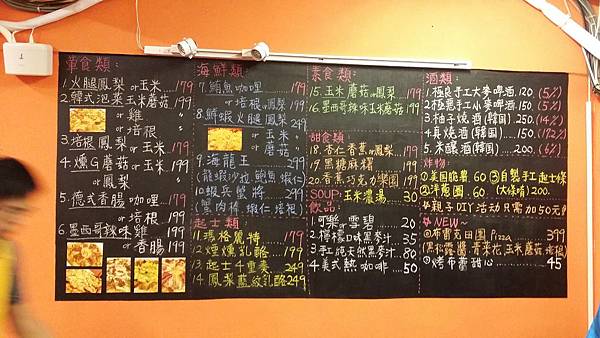 葷食類:
1.火腿鳳梨or玉米 179
2.韓式泡菜玉米蘑菇 199
or 雞 〃
or 培根 〃
3.培根鳳梨or玉米 179
4.燻G蘑菇or玉米 199
or鳳梨 〃
5.德式香腸咖哩 179
or 培根 199
6.墨西哥辣味雞 199
or香腸 199
海鮮類:
7.鮪魚咖哩 179
or 培根.鳳梨 199
8.鮮蝦火腿鳳梨 249
or 玉米 〃
or 蘑菇 〃
9.海龍王 249
(龍蝦沙拉.鮑魚.蝦仁)
10.蝦兵蟹將 249
(蟹肉棒.蝦仁.培根)
起士類:
11.瑪格麗特 179
12.煙燻乳酪 249
13.起士4重奏 249
14.鳳梨藍紋乳酪 249
素食類:
15.玉米蘑菇or鳳梨 179
16.墨西哥辣味玉米蘑菇 199
甜食類:
18.杏仁香蕉or鳳梨 199
19.黑糖麻糬 199
20.香蕉巧克力樂園 199
SOUP:玉米濃湯 30
飲品
1.可樂or雪碧 20
2.檸檬口味黑麥汁 35
3.手工燒天然黑麥汁 80
4.美式熱咖啡 50
酒類:
1.極品手工大麥啤酒.120.(5%)
2.極品手工小麥啤酒.150.(5%)
3.柚子燒酒(韓国).250.(14%)
4.真燒酒(韓国).150.(17.2%)
5.米釀酒(韓国).200.(6%)
炸物:
①美国脆薯.60 ③自製手工起士條
②洋蔥圈.60. (大條唷)200.
親子DIY活動只需加50元
NEW~
@布雷克田園Pizza 399
(黑松露醬.青菜花.玉米.蘑菇.培根)
①烤布蕾甜心 45